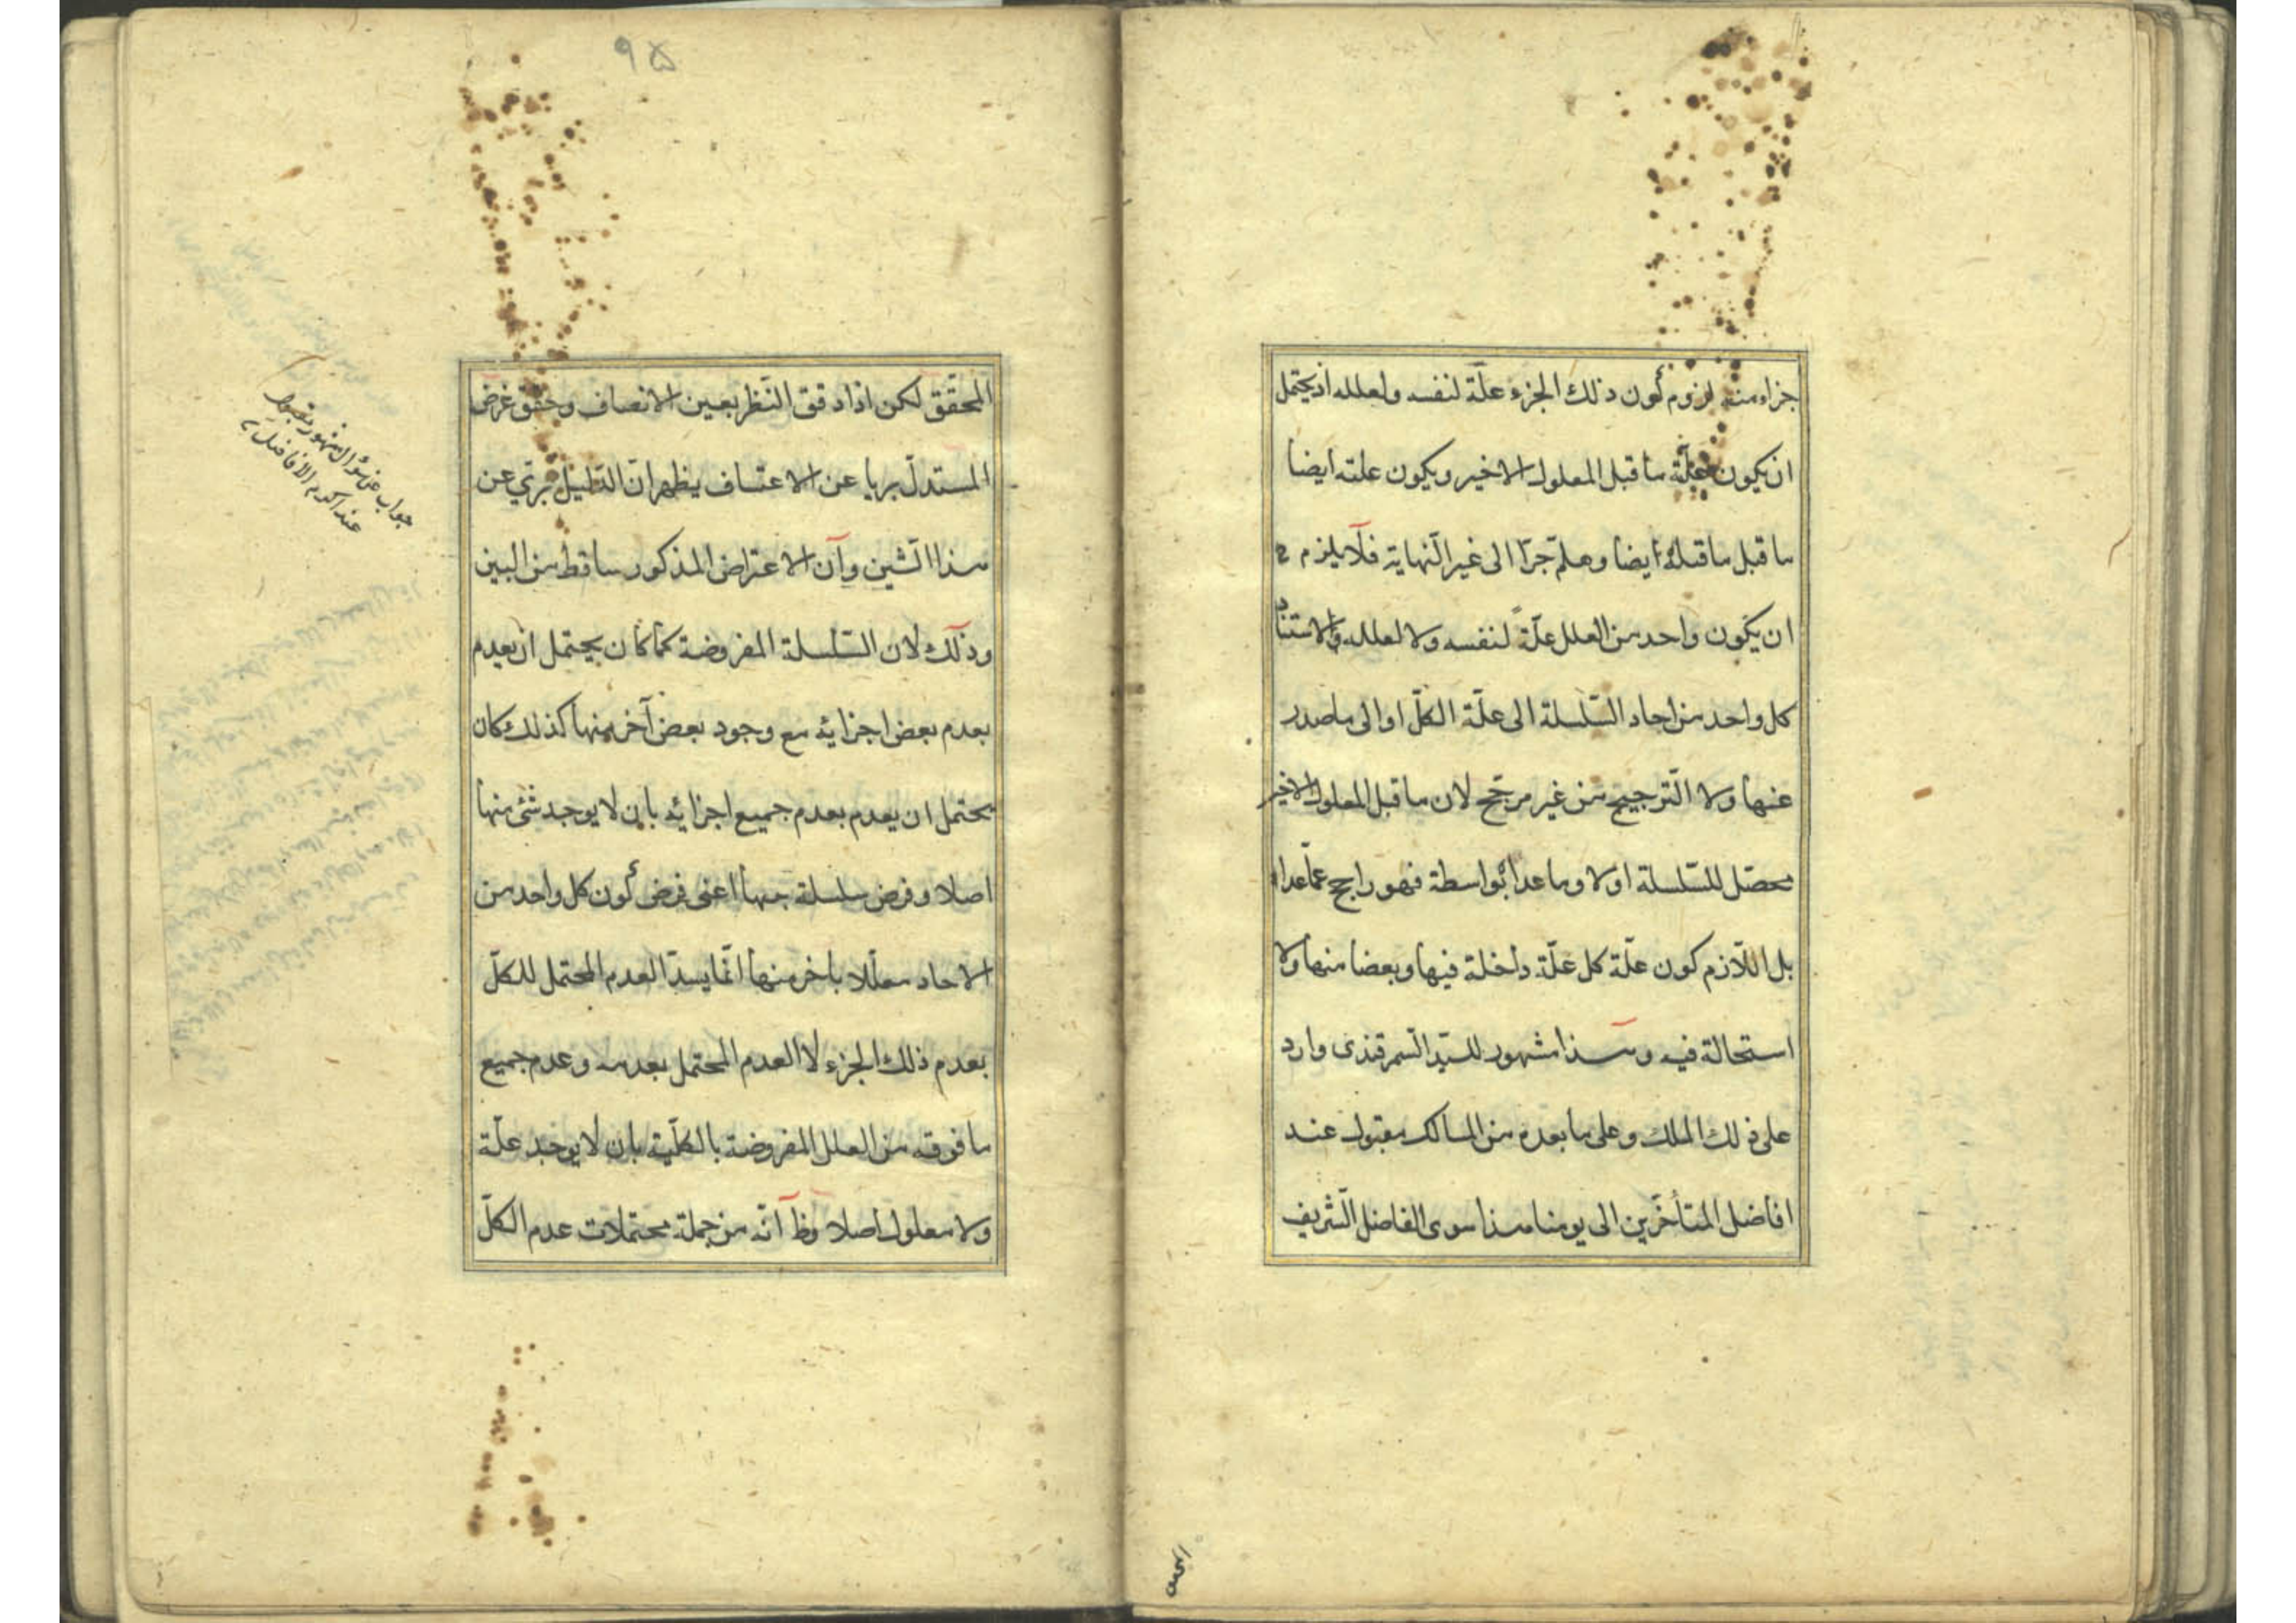 جزاء منه لزوم كون ذلك الجزء علّة لنفسه ولعلله اذ يحتمل
ان يكون علّة ما قبل المعلول الاخير ويكون علته ايضا
ما قبل ما قبله ايضا وهلمّ جرّا الى غير النّهاية فلا يلزم ح
ان يكون واحد من العلل علّةً لنفسه ولا لعلله والاستناد
كل واحد من احاد السّلسلة الى علّة الكلّ او الى ما صدر
عنها ولا التّرجيح من غير مرجّح لان ما قبل المعلول الاخير
محصّل للسّلسلة اولا وما عداه بواسطة فهو راجح عمّا عداه
بل اللّازم كون علّة كل علّة داخلة فيها وبعضا منها ولا
استحالة فيه وهذا مشهور للسيّد السّمرقندى وارد
على ذلك الملك وعلى ما بعده من المسالك مقبول عند
افاضل المتأخّرين الى يومنا هذا سوى الفاضل الشّريف
المحقّق
٩٥
المحقّق لكن اذا دقق النّظر بعين الانصاف وحقّق غرض
المستدلّ بريا عن الاعتساف يظهر انّ الدّليل برئ عن
هذا الشّين وآن الاعتراض المذكور ساقط من البين
وذلك لان السّلسلة المفروضة كما كان يحتمل ان يعدم
بعدم بعض اجزائه مع وجود بعض آخر منها كذلك كان
يحتمل ان يعدم بعدم جميع اجزائه بان لا يوجد شئ منها
اصلا وفرض سلسلة منها اعنى فرض كون كل واحد من
الاحاد معلّلا باخر منها انّما يسدّ العدم المحتمل للكلّ
بعدم ذلك الجزء لا العدم المحتمل بعدمه وعدم جميع
ما فوقه من العلل المفروضة بالكلّية بان لا يوجد علّة
ولا معلول اصلا وظ آنّه من جملة محتملات عدم الكلّ
جواب عن سؤال مشهور مقبول
عند اكرم الافاضل